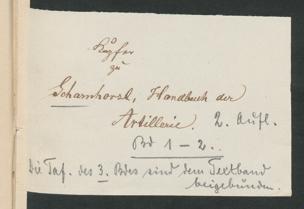 Kupfer
zu
Scharnhorst, Handbuch der
Artillerie. 2. Aufl.
Bd 1-2.
Die Taf. des 3. Bdes sind dem Textband
beigebunden.